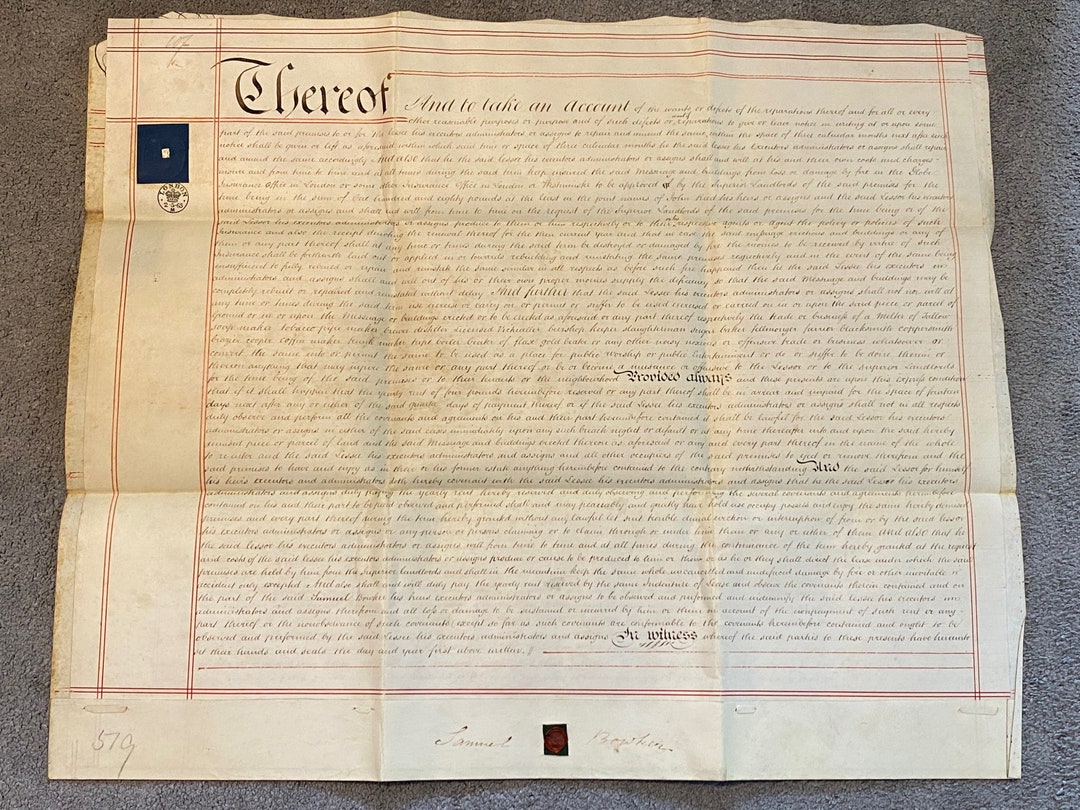 Thereof And to take an account of the wants or defects of the reparations thereof and for all or every
other reasonable purposes or purpose and of such defects or wants reparations to give or leave notice in writing at or upon some
part of the said premises to or for the lessee his executors administrators or assigns to repair and amend the same within the space of three calendar months next after such
notice shall be given or left as aforesaid within which said time or space of three calendar months he the said lessee his executors administrators or assigns shall repair
and amend the same accordingly And also that he the said lessee his executors administrators or assigns shall and will at his and their own costs and charges
insure and from time to time and at all times during the said term keep insured the said Messuage and buildings from loss or damage by fire in the Globe
Insurance Office in London or some other Insurance Office in London or Westminster to be approved of by the Superior Landlords of the said premises for the
time being in the sum of One hundred and eighty pounds at the least in the joint names of John his heirs or assigns and the said Lessee his executors
administrators or assigns and shall and will from time to time on the request of the Superior Landlords of the said premises for the time being or of the
said Lessor his executors administrators or assigns produce to them or him respectively or to their respective agents or agent the policy or policies of such
Insurance and also the receipt denoting the renewal thereof for the then current year And that in case the said messuage erections and buildings or any of
them or any part thereof shall at any time or times during the said term be destroyed or damaged by fire the monies to be received by virtue of such
Insurance shall be forthwith laid out or applied in or towards rebuilding and reinstating the same premises respectively and in the event of the same being
insufficient to fully rebuild or repair and reinstate the same similar in all respects as before such fire happened then he the said Lessee his executors
administrators and assigns shall and will out of his or their own proper monies supply the deficiency so that the said Messuage and buildings may be
completely rebuilt or repaired and reinstated without delay And further that the said Lessee his executors administrators or assigns shall not nor will at
any time or times during the said term use exercise or carry on or permit or suffer to be used exercised or carried on in or upon the said piece or parcel of
ground or in or upon the Messuage or buildings erected or to be erected as aforesaid or any part thereof respectively the trade or business of a Melter of Tallow
soap maker tobacco pipe maker brewer distiller Licensed Victualler beershop keeper slaughterman sugar baker fellmonger furrier blacksmith coppersmith
brazier cooper coffin maker trunk maker tripe boiler beater of flax gold beater or any other noisy noxious or offensive trade or business whatsoever or
convert the same into or permit the same to be used as a place for public worship or public Entertainment or do or suffer to be done therein or
thereon anything that may injure the same or any part thereof or be or become a nuisance or offensive to the Lessor or to the Superior Landlords
for the time being of the said premises or to their tenants or the neighbourhood Provided always and these presents are upon this express condition
that if it shall happen that the yearly rent of four pounds hereinbefore reserved or any part thereof shall be in arrear and unpaid for the space of fourteen
days next after any or either of the said quarter days of payment thereof or if the said lessee his executors administrators or assigns shall not in all respects
duly observe and perform all the covenants and agreements on his and their part hereinbefore contained it shall be lawful for the said Lessor his executors
administrators or assigns in either of the said cases immediately upon any such breach neglect or default or at any time thereafter into and upon the said hereby
demised piece or parcel of land and the said Messuage and buildings erected thereon as aforesaid or any and every part thereof in the name of the whole
to re-enter and the said Lessee his executors administrators and assigns and all other occupiers of the said premises to expel or remove therefrom and the
said premises to have and enjoy as in their or his former estate anything hereinbefore contained to the contrary notwithstanding And the said Lessor for himself
his heirs executors and administrators doth hereby covenant with the said Lessee his executors administrators and assigns that he the said Lessee his executors
administrators and assigns duly paying the yearly rent hereby reserved and duly observing and performing the several covenants and agreements hereinbefore
contained on his and their part to be paid observed and performed shall and may peaceably and quietly have hold use occupy possess and enjoy the same hereby demised
premises and every part thereof during the term hereby granted without any lawful let suit trouble denial eviction or interruption of from or by the said lessor
his executors administrators or assigns or any person or persons claiming or to claim through or under him them or any or either of them And also that he
the said lessor his executors administrators or assigns will from time to time and at all times during the continuance of the term hereby granted at the request
and costs of the said lessee his executors administrators or assigns produce or cause to be produced to him or them or as he or they shall direct the Lease under which the said
premises are held by him from the Superior landlords and shall in the meantime keep the same whole uncancelled and undefaced damage by fire or other inevitable
accident only excepted And also shall and will duly pay the yearly rent reserved by the same Indenture of Lease and observe the covenants therein contained and on
the part of the said Samuel Bowker his heirs executors administrators or assigns to be observed and performed and indemnify the said lessee his executors
administrators and assigns therefrom and all loss or damage to be sustained or incurred by him or them on account of the nonpayment of such rent or any
part thereof or the nonobservance of such covenants except so far as such covenants are conformable to the covenants hereinbefore contained and ought to be
observed and performed by the said Lessee his executors administrators and assigns In witness whereof the said parties to these presents have hereunto
set their hands and seals the day and year first above written
LONDON
519
Samuel Bowker